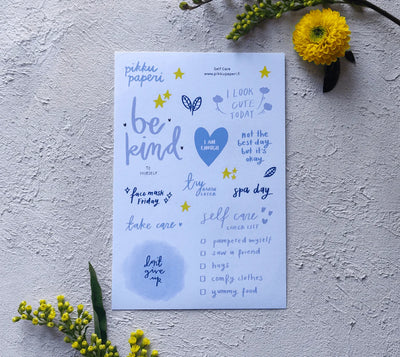 pikku
paperi
Self Care
www.pikkupaperi.fi
I LOOK
CUTE
TODAY
be
kind
to
myself
I AM
ENOUGH
not the
best day
but it's
okay.
face mask
Friday
try
again
later
spa day
take care
self care
check list
pampered myself
saw a friend
hugs
comfy clothes
yummy food
don't
give
up